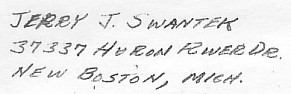 JERRY J. SWANTEK
37337 HURON RIVER DR.
NEW BOSTON, MICH.